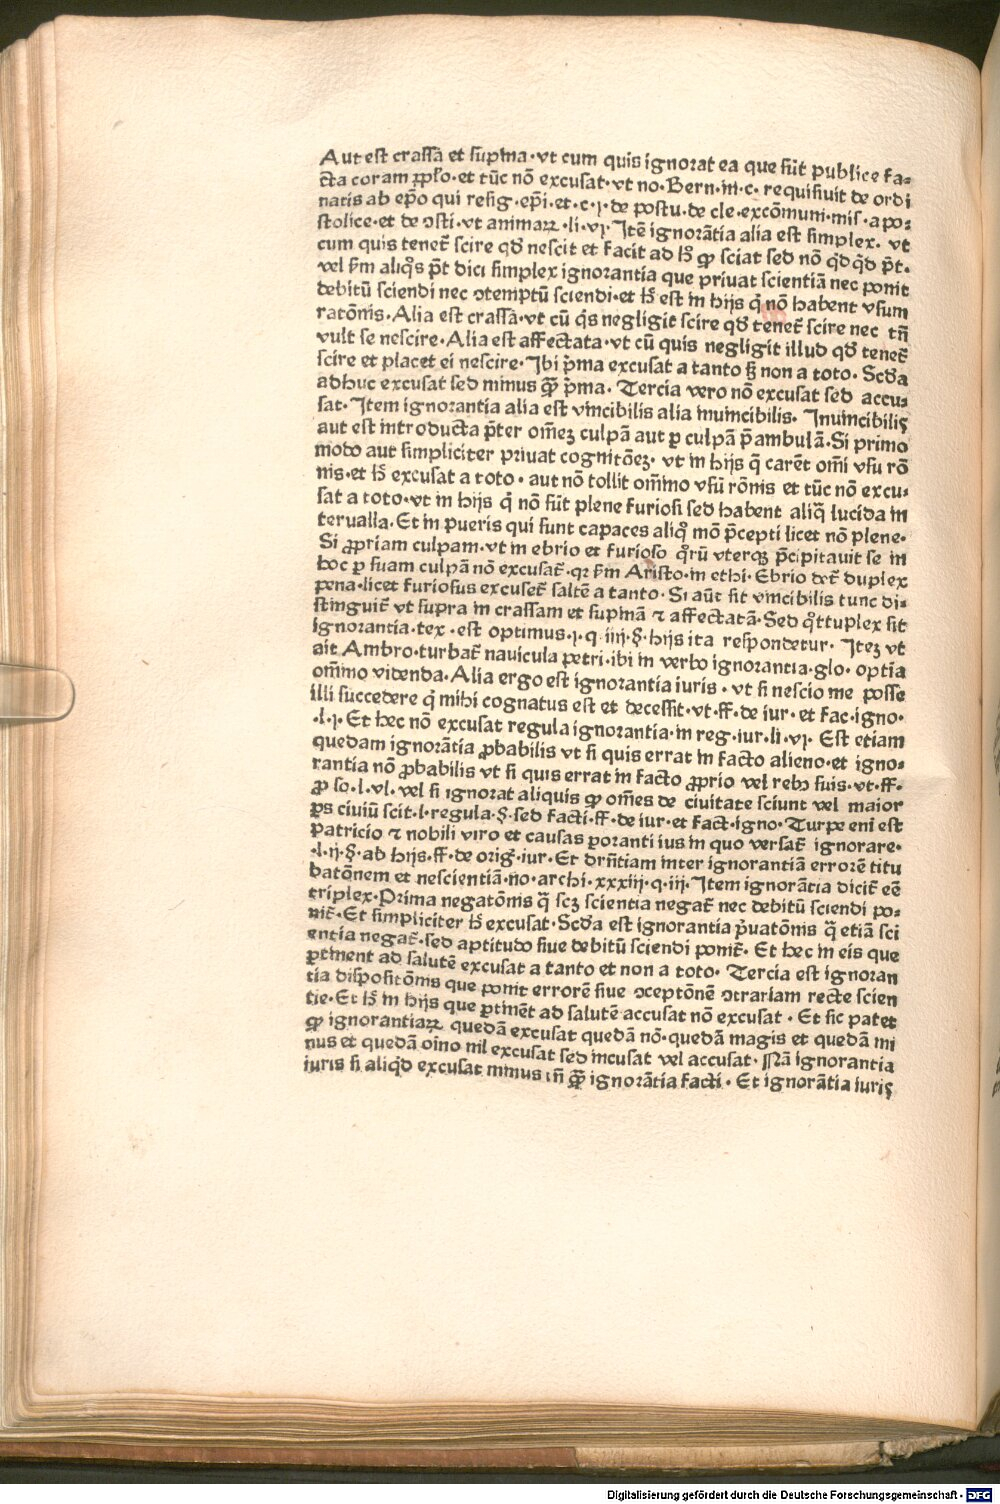 Aut est crassa et supina·vt cum quis ignorat ea que sūt publice fa-
cta coram pplo·et tūc nō excusat·vt no·Bern·in·c·requisiuit de ordi
natis ab epō qui resig·epi·et·c·j·de postu·de cle·excōmuni·mis·apo-
stolice·et de ɔsti·vt animaꝝ·li·vj·Itē ignorātia alia est simplex·vt
cum quis tenet̄ scire qd̛ nescit et facit ad h̛ ꝙ sciat sed nō qd̛ qd̛ p̄t·
vel s̄m aliqͦs p̄t dici simplex ignorantia que priuat scientiā nec ponit
debitū sciendi nec ɔtemptū sciendi·et h̛ est in hijs q̄ nō habent vsum
ratōnis·Alia est crassa·vt cū qͥs negligit scire qd̛ tenet̄ scire nec tn̄
vult se nescire·Alia est affectata·vt cū quis negligit illud qd̛ tenet̄
scire et placet ei nescire·Ibi p̄ma excusat a tanto ꝫ non a toto·Scd̛a
adhuc excusat sed minus qͣꝫ p̄ma·Tercia vero nō excusat sed accu-
sat·Item ignorantia alia est vincibilis alia inuincibilis·Inuincibilis
aut est introducta p̄ter omēꝫ culpā aut ꝑ culpā p̄ambulā·Si primo
modo aut simpliciter priuat cognitōeꝫ·vt in hijs q̄ carēt omī vsu rō
nis·et h̛ excusat a toto·aut nō tollit omīno vsū rōnis et tūc nō excu-
sat a toto·vt in hijs q̄ nō sūt plene furiosi sed habent aliq̄ lucida in
terualla·Et in pueris qui sunt capaces aliqͦ mō p̄cepti licet nō plene·
Si ꝓpriam culpam·vt in ebrio et furioso qͦrū vterqꝫ p̄cipitauit se in
hoc ꝑ suam culpā nō excusat̄·qꝛ s̄m Aristo·in ethi·Ebrio det̄ duplex
pena·licet furiosus excuset̄ saltē a tanto·Si aūt sit vincibilis tunc di-
stinguit̄ vt supra in crassam et supinā ⁊ affectatā·Sed qͦtuplex sit
ignorantia·tex·est optimus·j·q·iiij·§·hijs ita respondetur·Iteꝫ vt
ait Ambro·turbat̄ nauicula petri·ibi in verbo ignorantia·glo·optīa
omīno videnda·Alia ergo est ignorantia iuris·vt si nescio me posse
illi succedere q̄ mihi cognatus est et decessit·vt·ff·de iur·et fac·igno·
·l·j·Et hec nō excusat regula ignorantia·in reg·iur·li·vj·Est etiam
quedam ignorātia ꝓbabilis vt si quis errat in facto alieno·et igno-
rantia nō ꝓbabilis vt si quis errat in facto ꝓprio vel rebꝰ suis·vt·ff·
ꝓ so·l·vl·vel si ignorat aliquis ꝙ omēs de ciuitate sciunt vel maior
ps ciuiū scit·l·regula·§·sed facti·ff·de iur·et fact·igno·Turpe eni est
patricio ⁊ nobili viro et causas ꝑoranti ius in quo versat̄ ignorare·
·l·ij·§·ab hijs·ff·de orig̛·iur·Et drn̄tiam inter ignorantiā errorē titu
batōnem et nescientiā·no·archi·xxxiij·q·iij·Item ignorātia dicit̄ eē
triplex·Prima negatōnis q̄ scꝫ scientia negat̄ nec debitū sciendi po-
nit̄·Et simpliciter h̛ excusat·Scd̛a est ignorantia p̄uatōnis q̄ etiā sci
entia negat̄·sed aptitudo siue debitū sciendi ponit̄·Et hec in eis que
ꝑtinent ad salutē excusat a tanto et non a toto·Tercia est ignoran
tia dispositōnis que ponit errorē siue ɔceptōnē ɔtrariam recte scien
tie·Et h̛ in hijs que ꝑtinēt ad salutē accusat nō excusat·Et sic patet
ꝙ ignorantiaꝝ quedā excusat quedā nō·quedā magis et quedā mi
nus et quedā oīno nil excusat sed incusat vel accusat·Nā ignorantia
iuris si aliqd̛ excusat minus tn̄ qͣꝫ ignorātia facti·Et ignorātia iuris
Digitalisierung gefördert durch die Deutsche Forschungsgemeinschaft - DFG